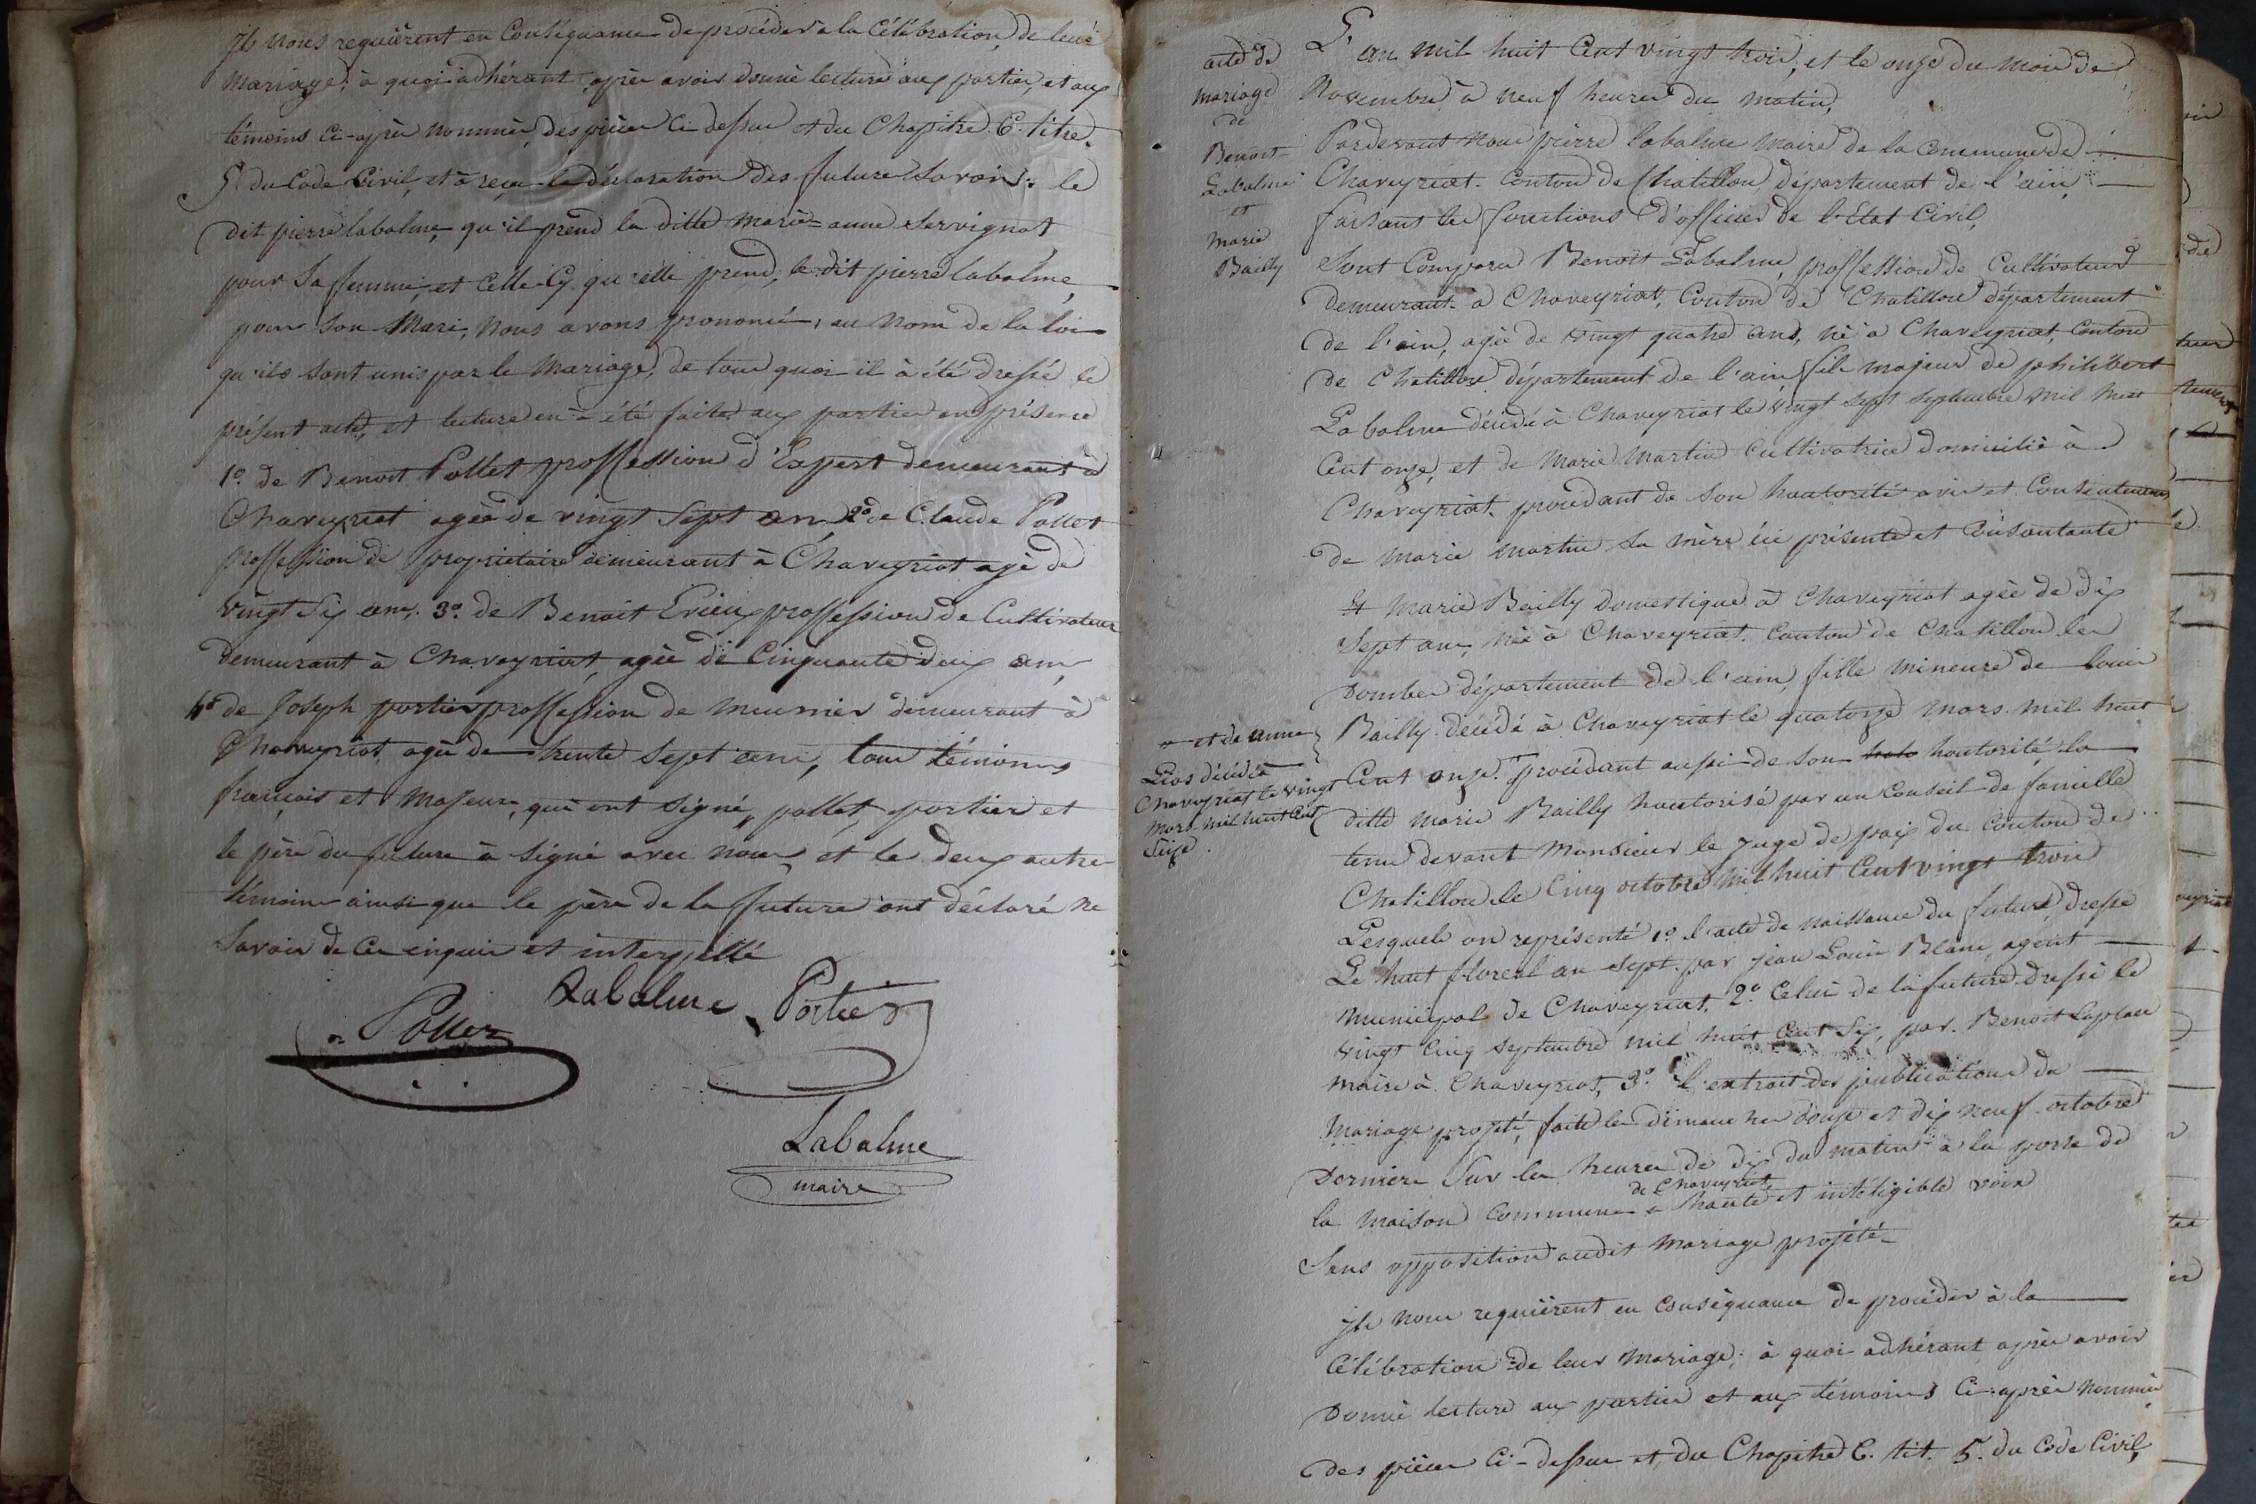 Ils nous requièrent en Conséquance de procéder à la Célébration de leur
Mariage; à quoi adhérant après avoir donné lecture aux parties, et aux
témoins Ci-après nommés, des pièces Ci dessus et du Chapitre 6. titre
5. du Code Civil, et à reçu la déclaration des futures Savoir: le
dit pierre labalme, qu'il prend la ditte marie=anne Servignat
pour Sa femme, et Celle Cy, qu'elle prend, le dit pierre labalme,
pour son Mari, Nous avons prononcé, au nom de la loi
qu'ils sont unis par le Mariage, de tous quoi il à été dressé le
présent acte, et lecture en à été faite aux parties en présence
1º. de Benoit Pollet proffession d'Expert demeurant à
Chaveyriat agée de vingt Sept ans 2º de Claude Pollet
proffession de propriétaire demeurant à Chaveyriat agé de
vingt Six ans, 3º. de Benoit proffession de Cultivateur
demeurant à Chaveyriat, agée de Cinquante deux ans,
4º de Joseph portier proffession de meunier demeurant à
Chaveyriat, agée de trente Sept ans, tous témoins
français et Majeurs, qui ont Signé, pollet, portier et
le père du future à Signé avec nous, et les deux autres
témoins ainsi que le père de la future ont déclaré ne
Savoir de Ce enquis et interpellé
Labalme Portier
Pollet
Labalme
maire
acte de
mariage
de
Benoit
Labalme
et
Marie
Bailly
L'an mil huit Cent vingt trois, et le onze du mois de
Novembre à neuf heures du matin,
Pardevant nous pierre labalme Maire de la Commune de
Chaveyriat. Canton de Chatillon, département de l'ain,
faisant les fonctions d'officier de l'Etat Civil,
Sont Comparu Benoit Labalme, proffession de Cultivateur
demeurant à Chaveyriat, Canton de Chatillon département
de l'ain, agée de vingt quatre ans, né à Chaveyriat, Canton
de Chatillon département de l'ain fils majeur de philibert
Labalme décédé à Chaveyriat le vingt sept septembre mil huit
Cent onze, et de Marie Martin Cultivatrice domicilié à
Chaveyriat. procédant de son hautorité avis et Consentement
de marie martin sa mère ici présente et Consantante
Et Marie Bailly Domestique à Chaveyriat agée de dix
Sept ans, née à Chaveyriat. Canton de Chatillon les
Dombes département de l'ain, fille mineure de louis
Bailly décédé à Chaveyriat le quatorze Mars mil huit
Cent onze. procédant aussi de son hautorité, la
et de anne
Lios décédée à
Chaveyriat le vingt
Mars mil huit Cent
Seize.
ditte marie Bailly hautorisé par un Conseil de famille
tenu devant Monsieur le Juge de paix du Canton de
Chatillon le Cinq octobre mil huit Cent vingt trois
Lesquels on représenté 1º. l'acte de naissance du future, dressé
Le huit floreal an Sept par jean Louis Blanc, agent
Municipal de Chaveyriat. 2º. Celui de la future dressé le
vingt Cinq septembre mil huit Cent Six, par. Benoit
maire à Chaveyriat, 3º. l'extrait des publications du
Mariage projeté, faite les dimanches douze et dix neuf octobre
Derniers Sur les heures de dix du matin à la porte de
de Chaveyriat
la Maison Commune à haute et intéligible voix
Sans opposition audit Mariage projété
Ils nous requièrent en Conséquance de procéder à la
Célébration de leur Mariage; à quoi adhérant, après avoir
Donné lecture aux parties et aux témoins Ci-après nommés
des pièces Ci-dessus et du Chapitre 6. tit. 5. du Code Civil,